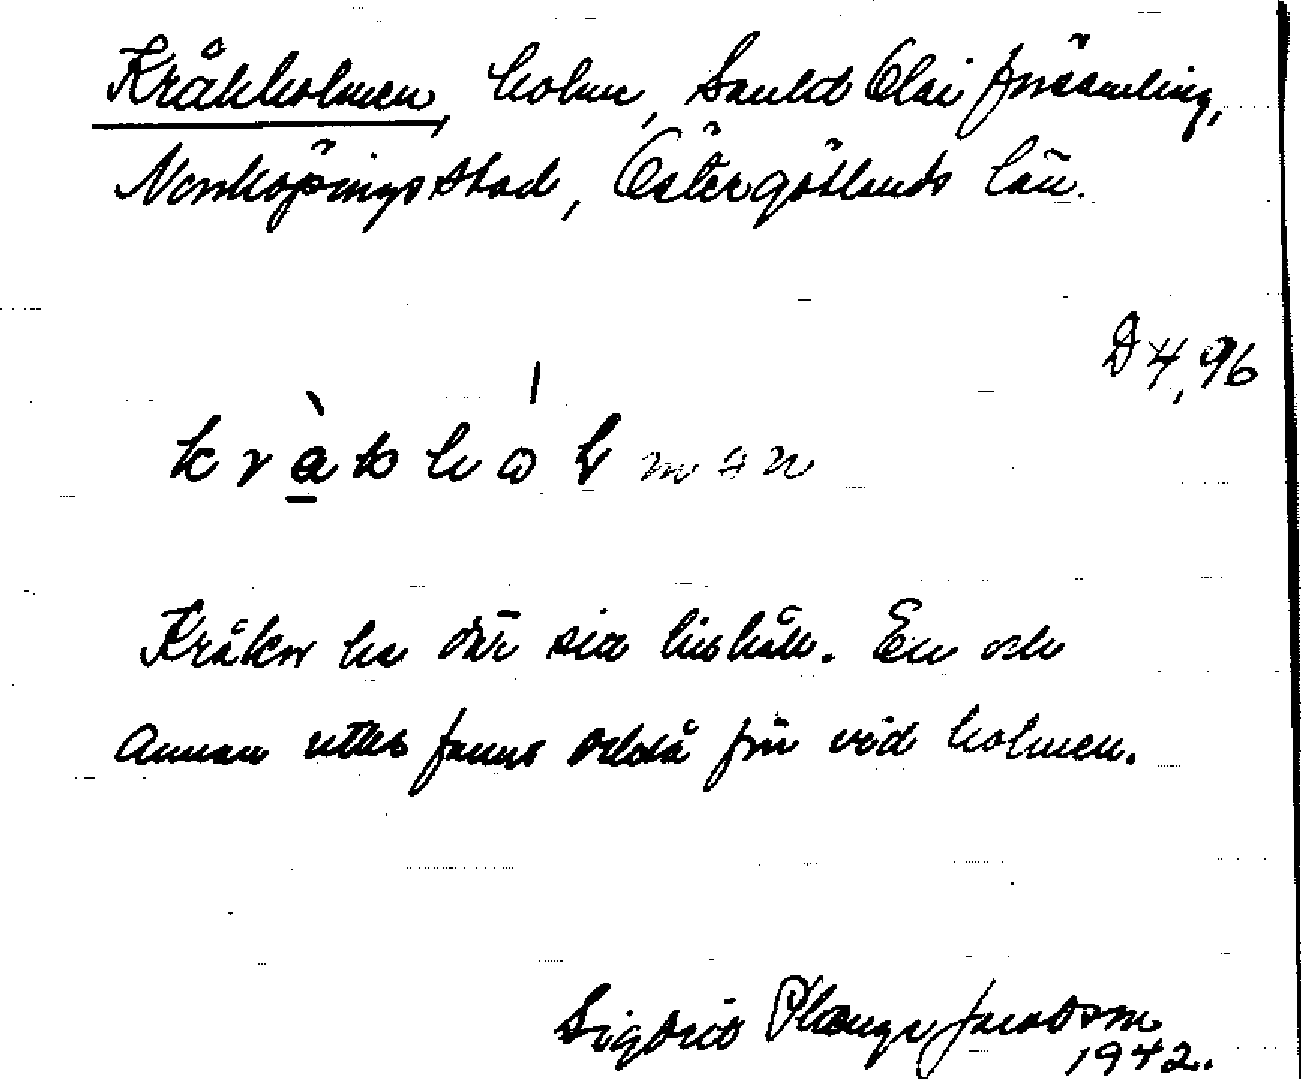 Kråkholmen, holm, Sankt Olai församling,
Norrköpings stad, Östergötlands län.
D 4,96
Kråkor ha där sitt tillhåll. En och
annan utter fanns också förr vid holmen.
Sigbrit Plænge Jacobson
1942.